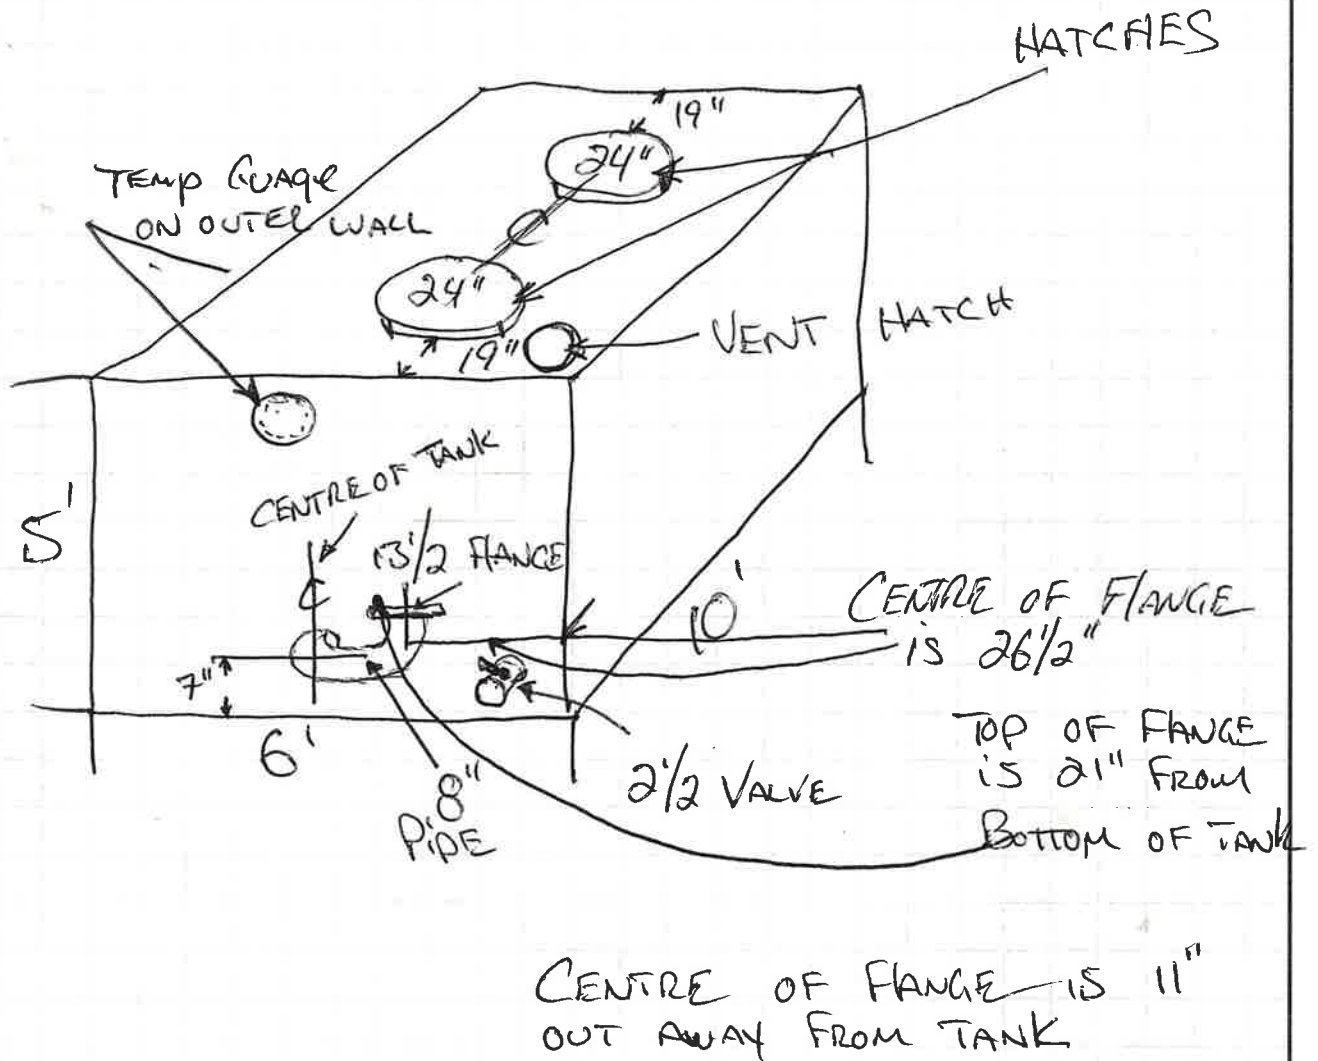 HATCHES
19"
24"
TEMP GUAGE
ON OUTER WALL
24"
19"
VENT HATCH
CENTRE OF TANK
5'
13 1/2 FLANGE
10'
CENTRE OF FLANGE
is 26 1/2"
7"
6'
8"
PiPE
2 1/2 VALVE
TOP OF FLANGE
is 21" FROM
BOTTOM OF TANK
CENTRE OF FLANGE IS 11"
OUT AWAY FROM TANK